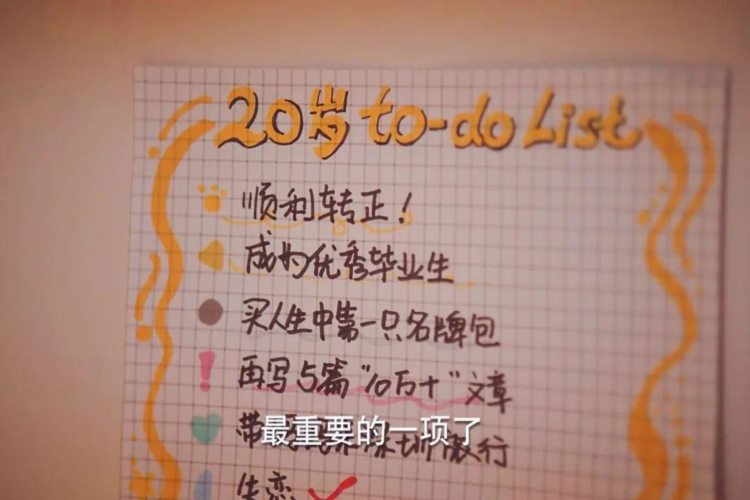 20岁 to-do List
顺利转正!
成为优秀毕业生
买人生中第一只名牌包
再写5篇“10万+”文章
带
圳旅行
最重要的一项了
失恋